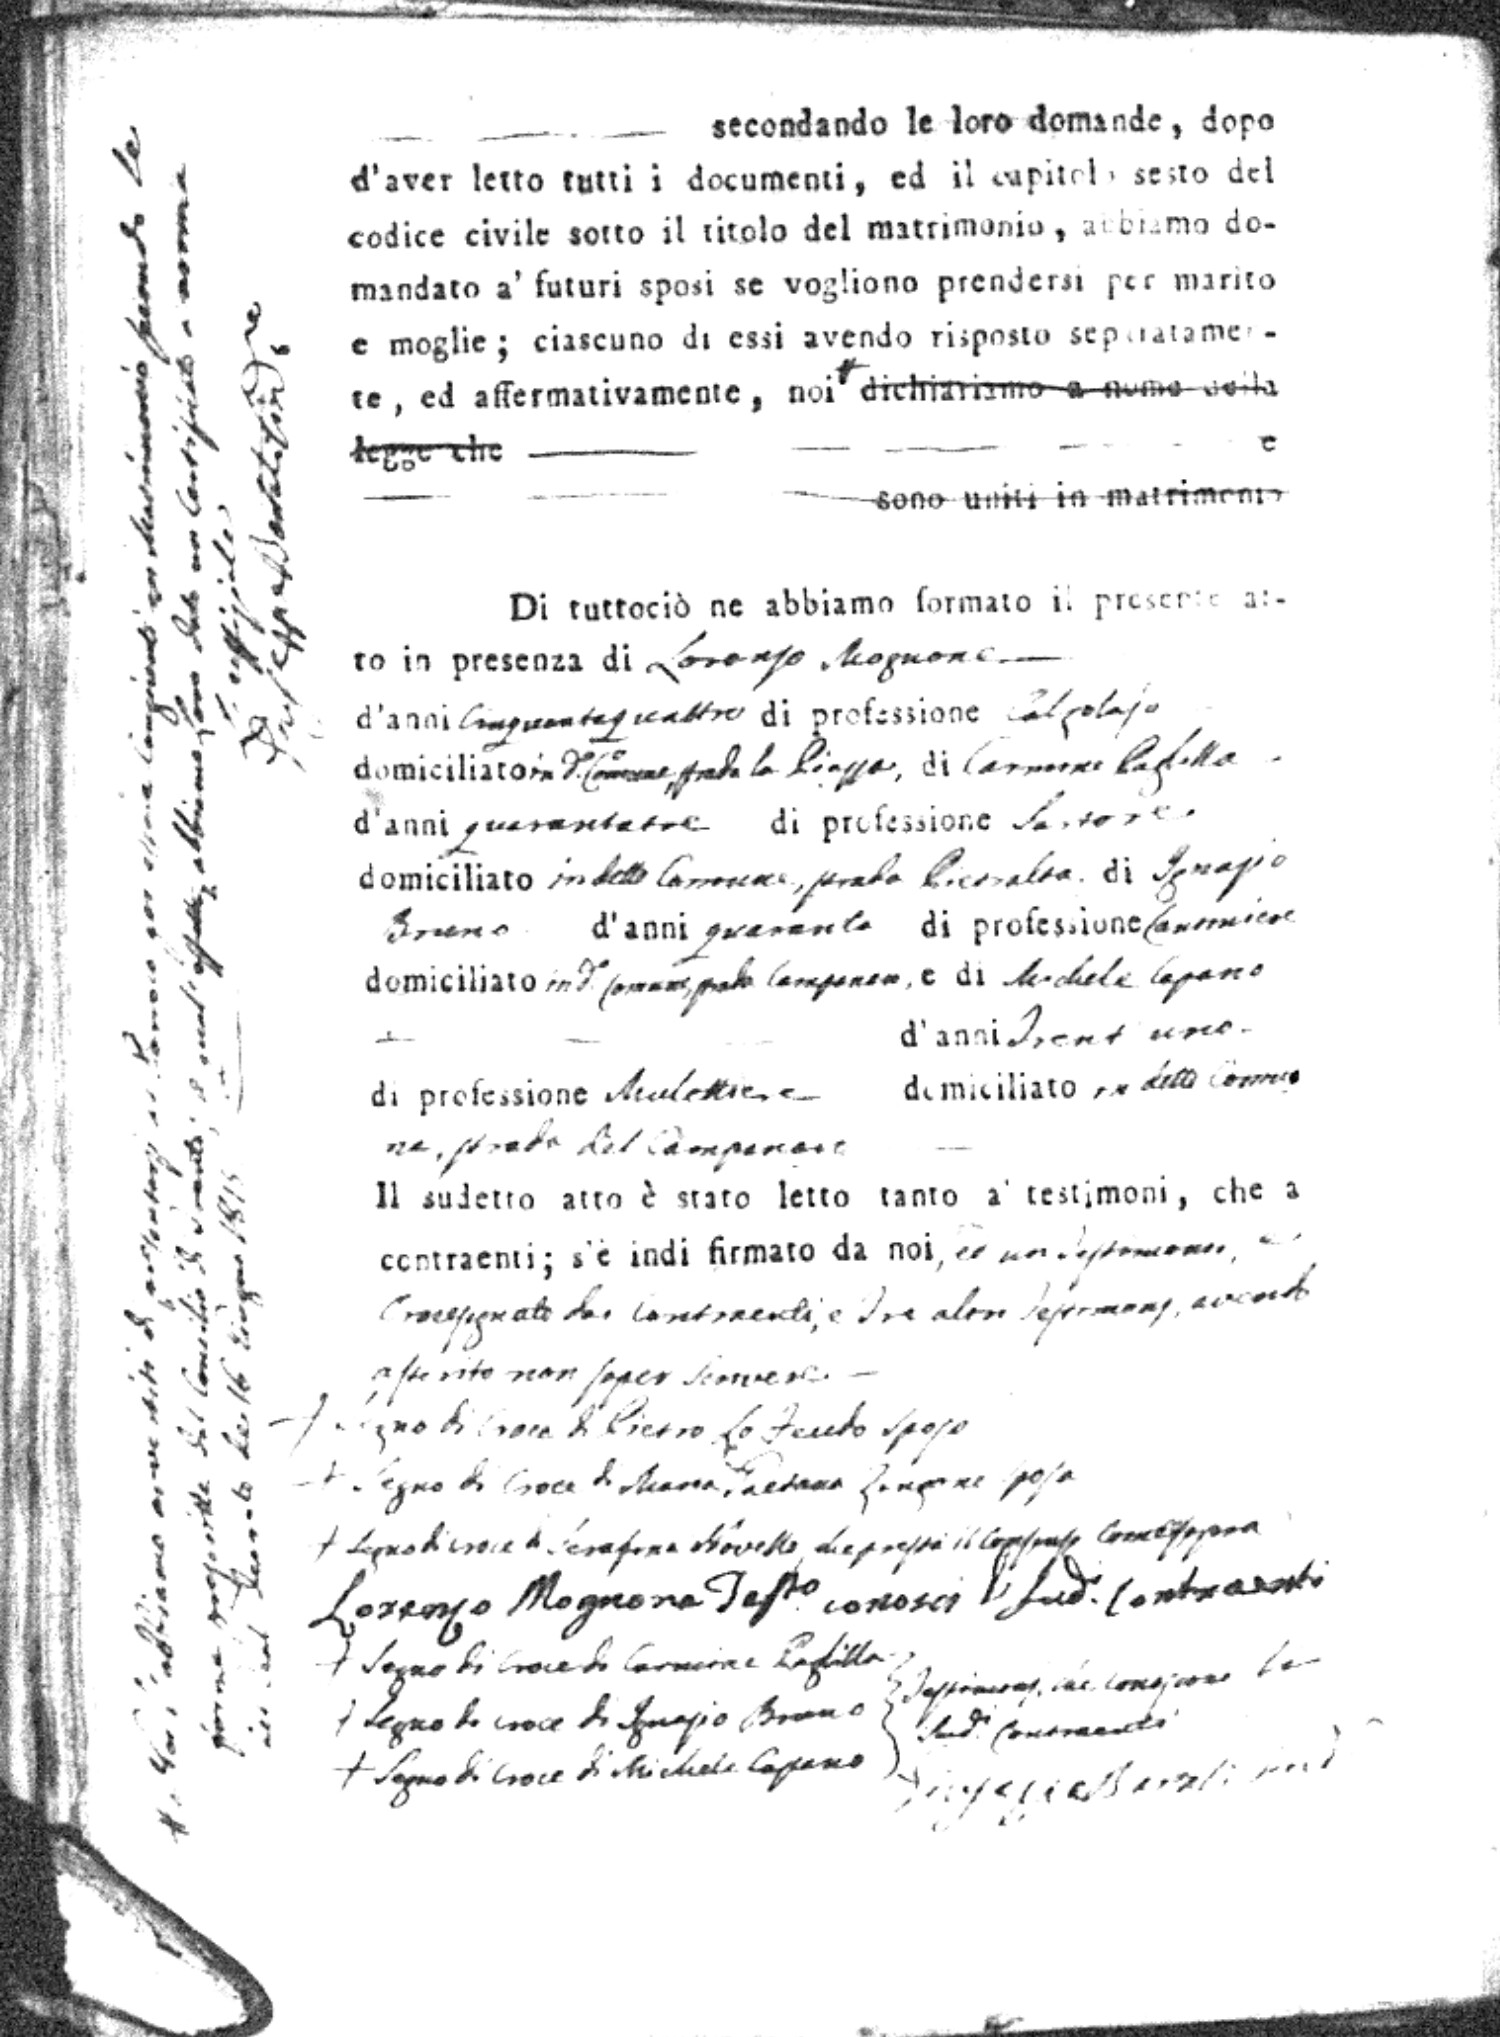 secondando le loro domande, dopo
d'aver letto tutti i documenti, ed il capitolo sesto del
codice civile sotto il titolo del matrimonio, abbiamo do-
mandato a' futuri sposi se vogliono prendersi per marito
e moglie; ciascuno di essi avendo risposto separatamen-
te, ed affermativamente, noi # dichiariamo a nome della
legge che e
sono uniti in matrimonio
Di tuttociò ne abbiamo formato il presente at-
to in presenza di Lorenzo Mognone
d'anni Cinquantaquattro di professione Calzolajo
domiciliato in d.o Comune, strada la Piazza, di Carmine
d'anni quarantatre di professione Sartore
domiciliato in detto Comune, strada Pietralta di Ignazio
Bruno d'anni quaranta di professione
domiciliato in d.o Comune, strada Campanaro, e di Michele Capano
d'anni Trent'uno
di professione Mulattiere domiciliato in detto Comu
ne, strada del Campanaro
Il sudetto atto è stato letto tanto a' testimoni, che a
contraenti; s'è indi firmato da noi, ed un Testimonio, e
Crocesignato dai Contraenti, e Tre altri Testimonj, avendo
asserito non saper scrivere
+ Segno di Croce di Pietro Lo Feudo Sposo
+ Segno di Croce di Maria Gaetana Sposa
+ Segno di croce di Serafina Novello, che presta il Consenso Come sopra
Lorenzo Mognone Testo conosci l' Sud.i Contraenti
+ Segno di Croce di Carmine
+ Segno di croce di Ignazio Bruno
+ Segno di Croce di Michele Capano
Testimonj, che conoscono li
Sud.i Contraenti
# Noi abbiamo avvertiti di presentarsi al Parroco per essere Congiunti in Matrimonio secondo le
forme prescritte dal Concilio di Trento; a qual'effetto abbiamo loro dato un Certificato a norma
del Decreto de' 16 Giugno 1815